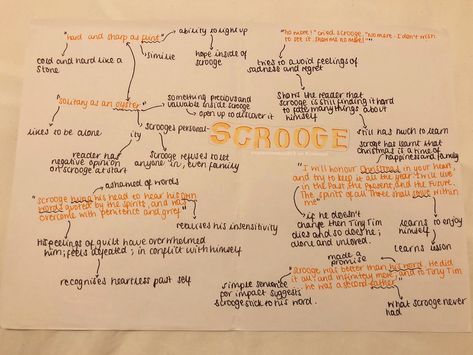 "hard and sharp as flint"
ability to light up
simile
hope inside of
scrooge
cold and hard like a
stone
"solitary as an oyster"
something precious and
valuable inside scrooge
open up to discover it
likes to be alone
Scrooges personal-
ity
reader had
negative opinion
of scrooge at start
Scrooge refuses to let
anyone in, even family
SCROOGE
"no more!" cried scrooge "No more. I don't wish
to see it. Show me no more!"
tries to avoid feelings of
sadness and regret
Shows the reader that
scrooge is still finding it hard
to face many things about
himself
still has much to learn
scrooge has learnt that
Christmas is a time of
happiness and family
"I will honour Christmas in your heart,
and try to keep it all the year. I will live
in the Past, the Present, and the Future.
The Spirits of all Three shall strive within
me"
if he doesn't
change then Tiny Tim
dies and so does he;
alone and unloved.
learns to enjoy
himself
learns lesson
made a
promise
"Scrooge was better than his word. He did
it all, and infinitely more; and to Tiny Tim
he was a second father"
simple sentence
for impact suggests
scrooge stick to his word.
what scrooge never
had
ashamed of words
"Scrooge hung his head to hear his own
words quoted by the spirit, and was
overcome with penitence and grief"
realises his insensitivity
His feelings of guilt have overwhelmed
him; feels defeated; in conflict with himself
recognises heartless past self